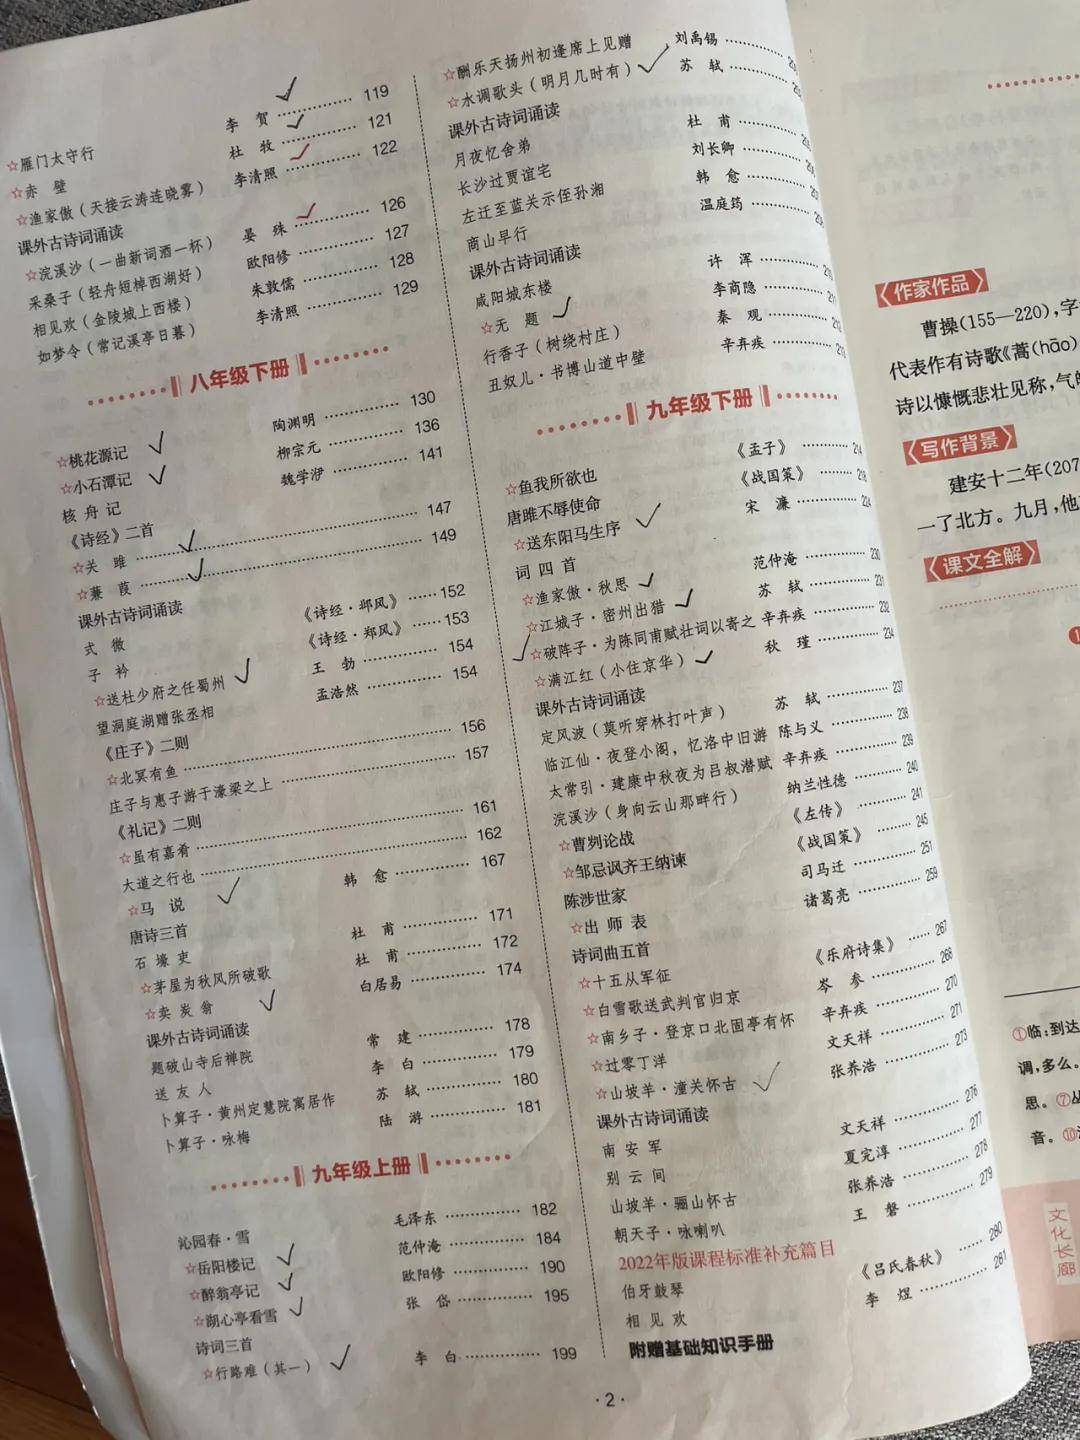 ☆雁门太守行 李贺 ………… 119
☆赤壁 杜牧 ………… 121
☆渔家傲（天接云涛连晓雾） 李清照 ………… 122
课外古诗词诵读
☆浣溪沙（一曲新词酒一杯） 晏殊 ………… 126
采桑子（轻舟短棹西湖好） 欧阳修 ………… 127
相见欢（金陵城上西楼） 朱敦儒 ………… 128
如梦令（常记溪亭日暮） 李清照 ………… 129
八年级下册
☆桃花源记 陶渊明 ………… 130
☆小石潭记 柳宗元 ………… 136
核舟记 魏学洢 ………… 141
《诗经》二首
☆关雎 ………… 147
☆蒹葭 ………… 149
课外古诗词诵读
式微 《诗经·邶风》 …… 152
子衿 《诗经·郑风》 …… 153
☆送杜少府之任蜀州 王勃 ………… 154
望洞庭湖赠张丞相 孟浩然 ………… 154
《庄子》二则
☆北冥有鱼 ………… 156
庄子与惠子游于濠梁之上 ………… 157
《礼记》二则
☆虽有嘉肴 ………… 161
大道之行也 ………… 162
☆马说 韩愈 ………… 167
唐诗三首
石壕吏 杜甫 ………… 171
☆茅屋为秋风所破歌 杜甫 ………… 172
☆卖炭翁 白居易 ………… 174
课外古诗词诵读
题破山寺后禅院 常建 ………… 178
送友人 李白 ………… 179
卜算子·黄州定慧院寓居作 苏轼 ………… 180
卜算子·咏梅 陆游 ………… 181
九年级上册
沁园春·雪 毛泽东 ………… 182
☆岳阳楼记 范仲淹 ………… 184
☆醉翁亭记 欧阳修 ………… 190
☆湖心亭看雪 张岱 ………… 195
诗词三首
☆行路难（其一） 李白 ………… 199
☆酬乐天扬州初逢席上见赠 刘禹锡 …………
☆水调歌头（明月几时有） 苏轼 …………
课外古诗词诵读
月夜忆舍弟 杜甫 …………
长沙过贾谊宅 刘长卿 …………
左迁至蓝关示侄孙湘 韩愈 …………
商山早行 温庭筠 …………
课外古诗词诵读
咸阳城东楼 许浑 …………
☆无题 李商隐 ………… 211
行香子（树绕村庄） 秦观 ………… 212
丑奴儿·书博山道中壁 辛弃疾 ………… 213
九年级下册
☆鱼我所欲也 《孟子》 ………… 214
唐雎不辱使命 《战国策》 ………… 218
☆送东阳马生序 宋濂 ………… 224
词四首
☆渔家傲·秋思 范仲淹 ………… 230
☆江城子·密州出猎 苏轼 ………… 231
☆破阵子·为陈同甫赋壮词以寄之 辛弃疾 ………… 232
☆满江红（小住京华） 秋瑾 ………… 234
课外古诗词诵读
定风波（莫听穿林打叶声） 苏轼 ………… 237
临江仙·夜登小阁，忆洛中旧游 陈与义 ………… 238
太常引·建康中秋夜为吕叔潜赋 辛弃疾 ………… 239
浣溪沙（身向云山那畔行） 纳兰性德 ………… 240
☆曹刿论战 《左传》 ………… 241
☆邹忌讽齐王纳谏 《战国策》 ………… 245
陈涉世家 司马迁 ………… 251
☆出师表 诸葛亮 ………… 259
诗词曲五首
☆十五从军征 《乐府诗集》 …… 267
☆白雪歌送武判官归京 岑参 ………… 268
☆南乡子·登京口北固亭有怀 辛弃疾 ………… 270
☆过零丁洋 文天祥 ………… 271
☆山坡羊·潼关怀古 张养浩 ………… 273
课外古诗词诵读
南安军 文天祥 ………… 276
别云间 夏完淳 ………… 277
山坡羊·骊山怀古 张养浩 ………… 278
朝天子·咏喇叭 王磐 ………… 279
2022年版课程标准补充篇目
伯牙鼓琴 《吕氏春秋》 …… 280
相见欢 李煜 ………… 281
附赠基础知识手册
·2·
《作家作品》
曹操(155—220),字
代表作有诗歌《蒿(hāo)
诗以慷慨悲壮见称,气
《写作背景》
建安十二年(207
一了北方。九月,他
《课文全解》
①临:到达
调,多么。
思。⑦
音。⑩
文化长廊